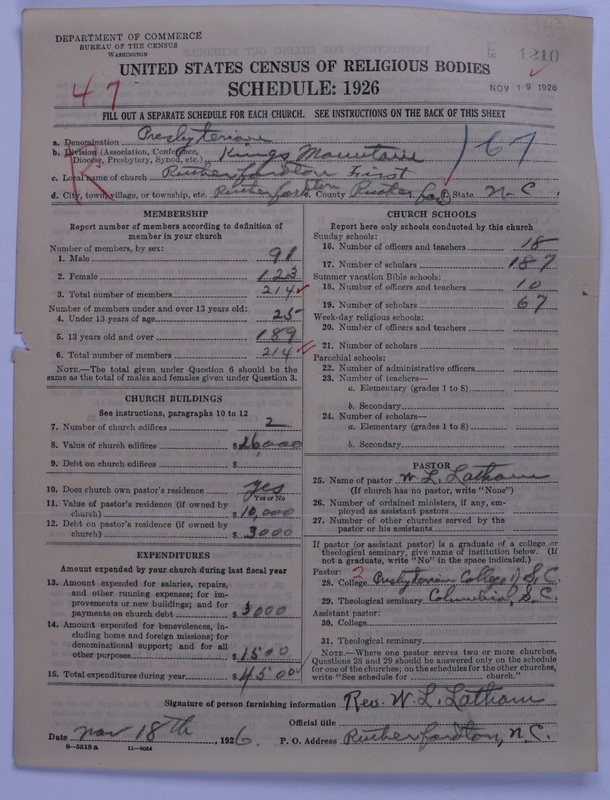 DEPARTMENT OF COMMERCE
BUREAU OF THE CENSUS
WASHINGTON
1210
UNITED STATES CENSUS OF RELIGIOUS BODIES
SCHEDULE: 1926
NOV 19 1926
47
FILL OUT A SEPARATE SCHEDULE FOR EACH CHURCH. SEE INSTRUCTIONS ON THE BACK OF THIS SHEET
a. Denomination Presbyterian
b. Division (Association, Conference, Diocese, Presbytery, Synod, etc.) Kings Mountain
167
c. Local name of church Rutherfordton First
d. City, town, village, or township, etc. Rutherfordton e. County Rutherford f. State N. C.
MEMBERSHIP
Report number of members according to definition of member in your church
Number of members, by sex:
1. Male 91
2. Female 123
3. Total number of members 214
Number of members under and over 13 years old:
4. Under 13 years of age 25
5. 13 years old and over 189
6. Total number of members 214
NOTE.—The total given under Question 6 should be the same as the total of males and females given under Question 3.
CHURCH BUILDINGS
See instructions, paragraphs 10 to 12
7. Number of church edifices 2
8. Value of church edifices $26,000
9. Debt on church edifices $
10. Does church own pastor's residence yes
Yes or No
11. Value of pastor's residence (if owned by church) $10,000
12. Debt on pastor's residence (if owned by church) $3000
EXPENDITURES
Amount expended by your church during last fiscal year
13. Amount expended for salaries, repairs, and other running expenses; for improvements or new buildings; and for payments on church debt $3000
14. Amount expended for benevolences, including home and foreign missions; for denominational support; and for all other purposes $1500
15. Total expenditures during year $4500
CHURCH SCHOOLS
Report here only schools conducted by this church
Sunday schools:
16. Number of officers and teachers 18
17. Number of scholars 187
Summer vacation Bible schools:
18. Number of officers and teachers 10
19. Number of scholars 67
Week-day religious schools:
20. Number of officers and teachers
21. Number of scholars
Parochial schools:
22. Number of administrative officers
23. Number of teachers—
a. Elementary (grades 1 to 8)
b. Secondary
24. Number of scholars—
a. Elementary (grades 1 to 8)
b. Secondary
PASTOR
25. Name of pastor W. L. Latham
(If church has no pastor, write "None")
26. Number of ordained ministers, if any, employed as assistant pastors
27. Number of other churches served by the pastor or his assistants
If pastor (or assistant pastor) is a graduate of a college or theological seminary, give name of institution below. (If not a graduate, write "No" in the space indicated.)
Pastor: 2
28. College Presbyterian College, S. C.
29. Theological seminary Columbia, S. C.
Assistant pastor:
30. College
31. Theological seminary
NOTE.—Where one pastor serves two or more churches, Questions 28 and 29 should be answered only on the schedule for one of the churches; on the schedules for the other churches, write "See schedule for church."
Signature of person furnishing information Rev. W. L. Latham
Official title
Date Nov 18th, 1926. P. O. Address Rutherfordton, N. C.
8—5518a 11—9034